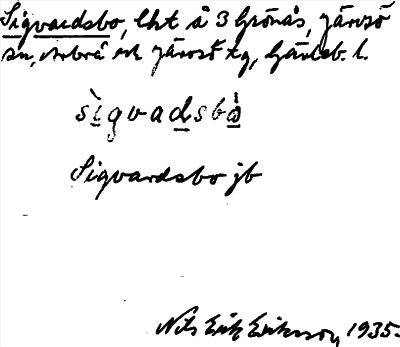 Sigvardsbo, lht å 3 Grönås, Järvsö
sn, Arbrå och Järvsö tg, Gävleb. l.
sìgvadsbò
Sigvardsbo jb
Nils Erik Eriksson 1935.